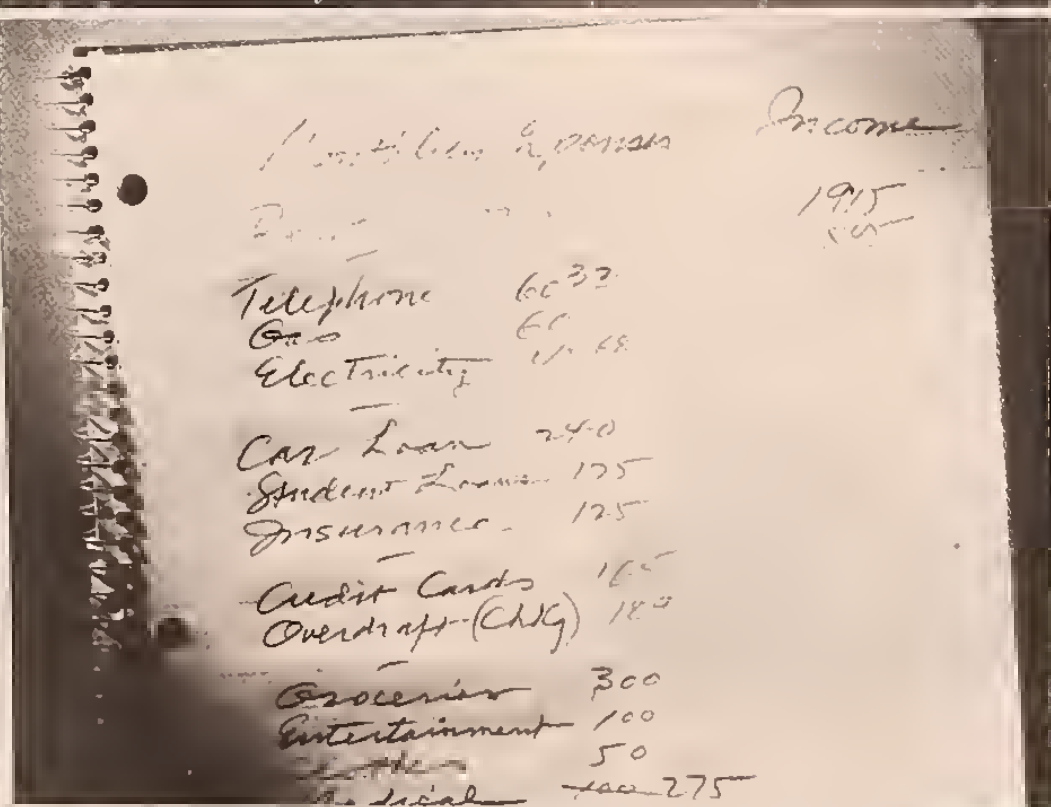 Monthly Expenses Income
1915
Telephone 60 32
Gas 60
Electricity
Car Loan 240
Student Loans 175
Insurance 125
Credit Cards 165
Overdraft (ChKg) 180
Groceries 300
Entertainment 100
Clothes 50
Medical 275